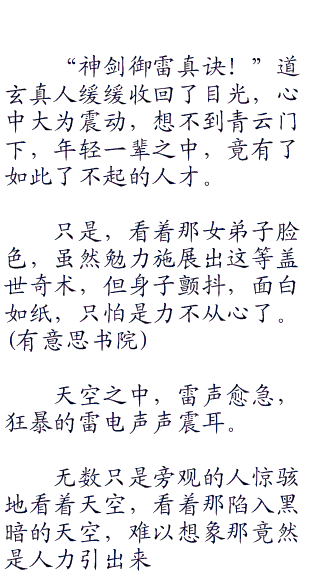 “神剑御雷真诀！”道
玄真人缓缓收回了目光，心
中大为震动，想不到青云门
下，年轻一辈之中，竟有了
如此了不起的人才。
只是，看着那女弟子脸
色，虽然勉力施展出这等盖
世奇术，但身子颤抖，面白
如纸，只怕是力不从心了。
(有意思书院)
天空之中，雷声愈急，
狂暴的雷电声声震耳。
无数只是旁观的人惊骇
地看着天空，看着那陷入黑
暗的天空，难以想象那竟然
是人力引出来